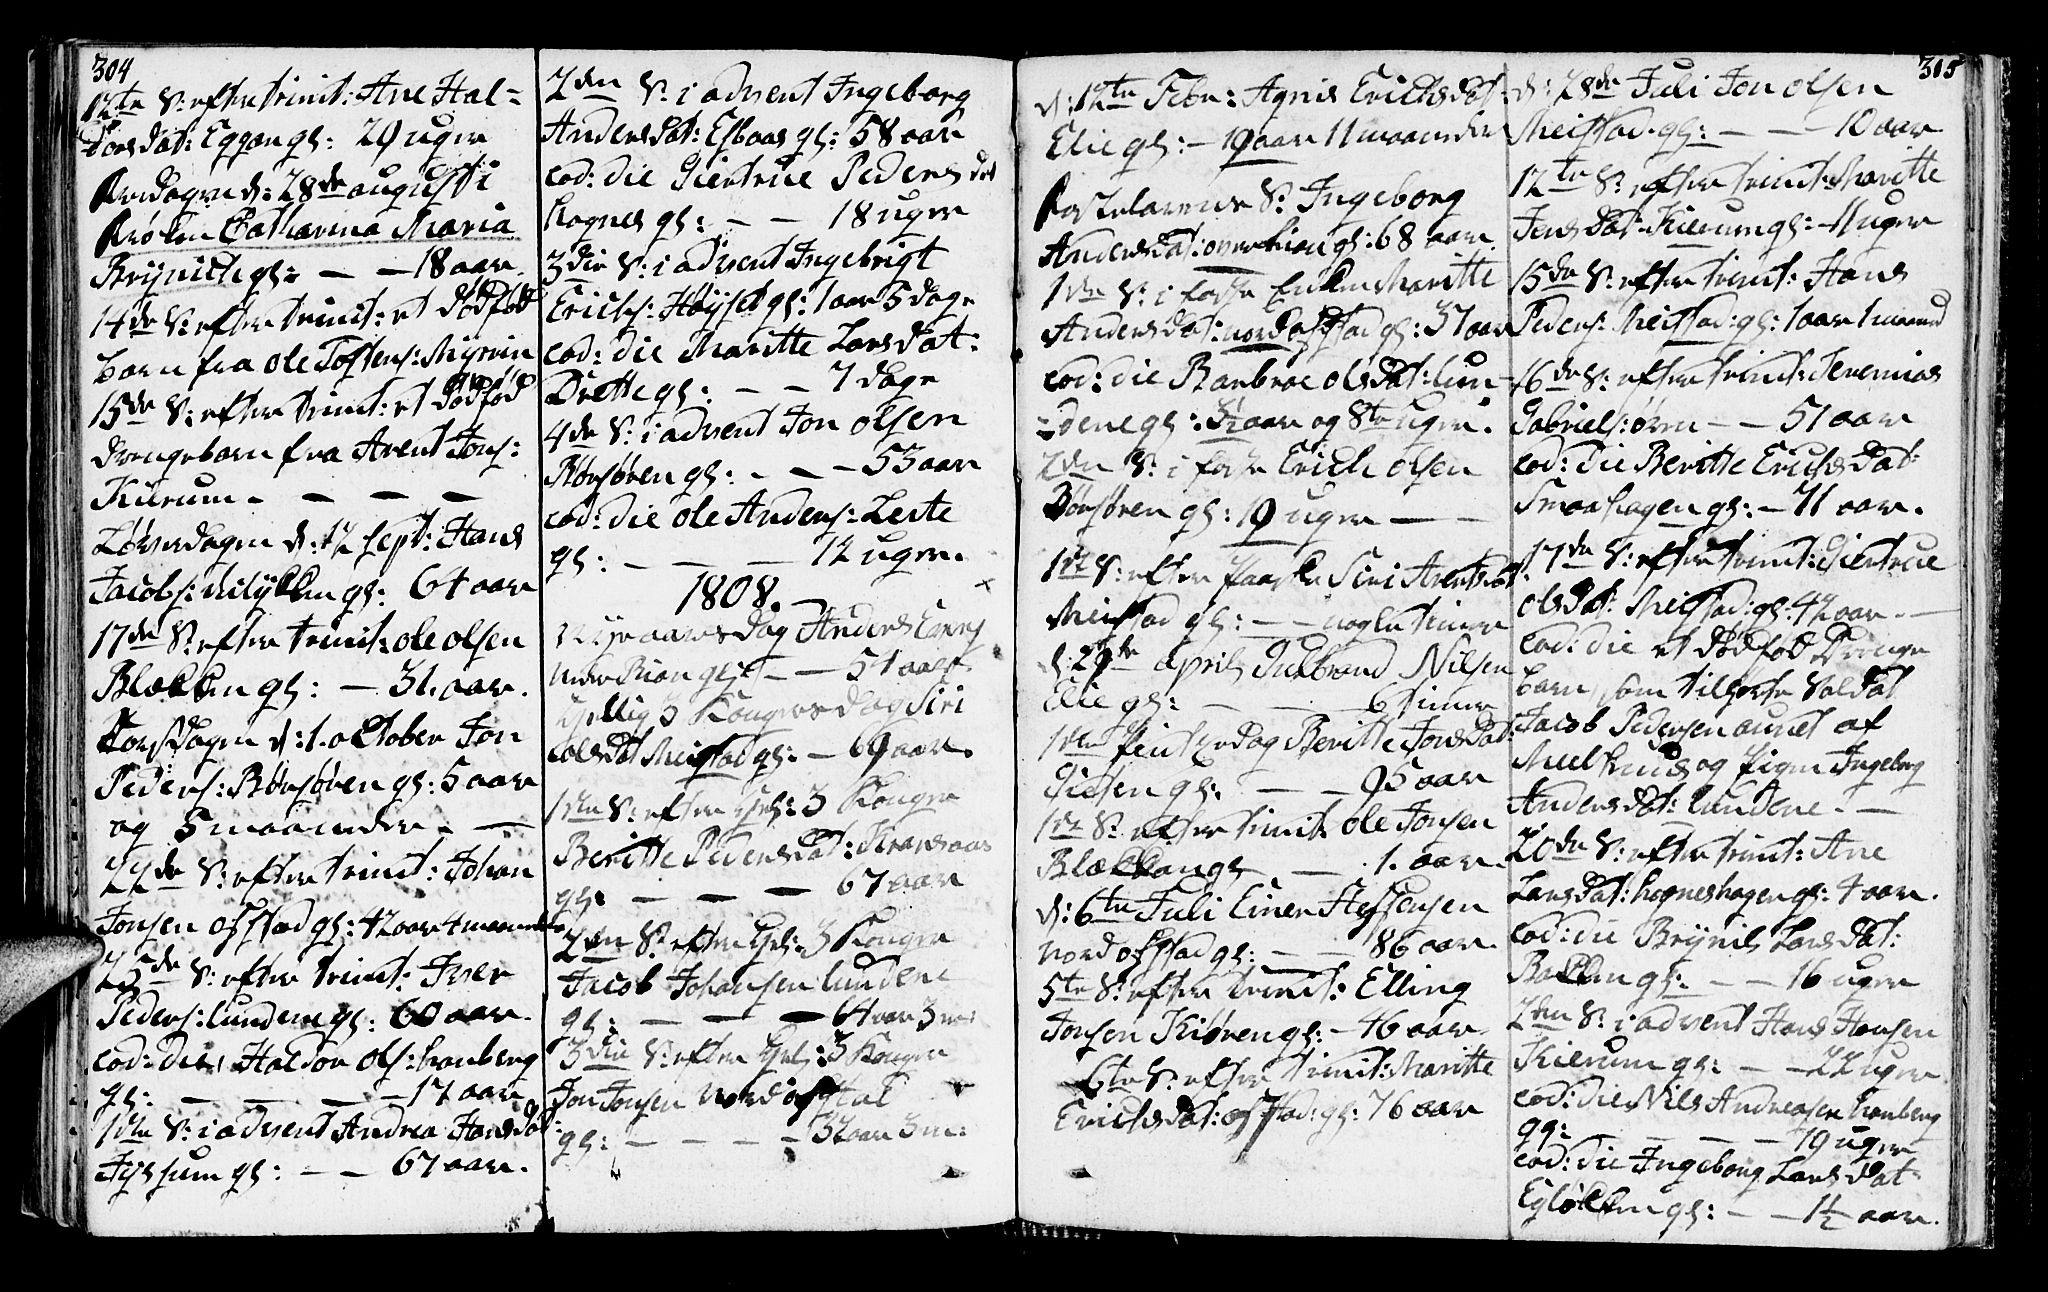 304
12te S: efter trinit: Ane Hal=
dorsdat: Eggan gl: 29 uger
Fredagen d: 28de augusti
Frøken Catharina Maria
Brÿnich gl: — — 18 aar
14de S: efter trinit: et dødfød
barn fra ole Tostens: Mÿren
15de S: efter trinit: et dødfød
drengebarn fra Arent Jons:
Kierum — — — —
Løverdagen d: 12 sept: Hans
Jacobs: gl: 64 aar
17de S: efter trinit: ole olsen
Blokken gl: — 31. aar.
Torsdagen d: 1. october Jon
Peders: Børsøren gl: 5 aar
og 5 maaneder. —
22de S: efter trinit: Johan
Jonsen ofstad gl: 42 aar 4 maaneder
23de S: efter trinit: Iver
Peders: lundene gl: 60 aar.
eod: die Haldor ols: hanberg
gl: — — — — 17 aar
1ste S: i advent Andrea Hansdat:
Jyssum gl: — — 67 aar.
2den S: i advent Ingeborg
Andersdat: Esbaas gl: 58 aar
eod: die Giertrue Pedersdat
hognes gl: — — 18 uger
3die S: i advent Ingebrigt
Erichs: Høyset gl: 1 aar 5 dage
eod: die Maritte Larsdat:
Drette gl: — — 7 dage
4de S: i advent Jon olsen
Børsøren gl: — — — 53 aar
eod: die ole Anders: Leste
gl: — — — 12 uger.
1808. —
Nÿeaarsdag Anders
neder Rian gl: — — 54 aar
Hellig 3 Kongers dag Siri
olsdat Meistad gl: — 69 aar.
1ste S: efter Hel: 3 Konger
Beritte Pedersdat: Svardaas
gl: — — — 67 aar
2den S: efter Hel: 3 Konger
Jacob Johansen lundene
gl: — — — 64 aar 3 m:
3die S: efter Hel: 3 Konger
Jon Jonsen Nordofstad
gl: — — — — 32 aar 3 m:
d: 12te Febr: Agnis Erichsdat:
Elie gl: — 19 aar 11 maaneder
Fastelavens S: Ingeborg
Andersdat: over Rian gl: 68 aar.
1ste S: i faste Enken Maritte
Andersdat: nordofstad gl: 37 aar
eod: die Barbroe olsdat: lun-
=dene gl: 3½ aar og 8te uger.
2den S: i faste Erich olsen
Børsøren gl: 19 uger — —
1ste S: efter Paaske Siri Arentsdat
Meistad gl: — — nogle timer
d: 29de April Gulbrand Nilsen
Elie gl: — — — 6 timer
1ste Pintzedag Beritte Jonsdat:
Giesen gl: — — 95 aar
1ste S: efter trinit: ole Jonsen
Blokkan gl — — 1. aar.
d: 6te Juli Einer Steffensen
nordofstad gl: — — 86 aar.
5te S: efter trinit: Elling
Jonsen Kiøren gl: — 46 aar.
6te S: efter trinit: Maritte
Erichsdat: ofstad: gl: 76 aar
305
d: 28de Juli Jon olsen
Meistad. gl: — — — 10 aar
12te S: efter trinit: Maritte
Jensdat: Kierum gl: — 11 uger
15de S: efter trinit: Hans
Peders: Meistad: gl: 1 aar 1 maaned
16de S: efter trinit: Jeremias
Gabriels: øren — — 51 aar
eod: die Beritte Erichsdat:
Smaahagen gl: — 71 aar.
17de S: efter trinit: Giertrue
olsdat: Meistad: gl: 42 aar. —
eod: die et dødfød drenge
barn, som tilhørte Soldat
Jacob Pedersen aunet af
Meelhuus og Pigen Ingeborg
Andersdat: lundene. —
20de S: efter trinit: Ane
Larsdat: hogneshagen gl: 4 aar.
eod: die Brÿnil Larsdat:
Bakken gl: — — 16 uger
2den S: i advent Hans Hansen
Kierum gl: — — 22 uger
eod: die Nils Andreasen hanberg
gl: — — — — 19 uger
eod: die Ingeborg Larsdat
Egløkken gl: — — 1½ aar.